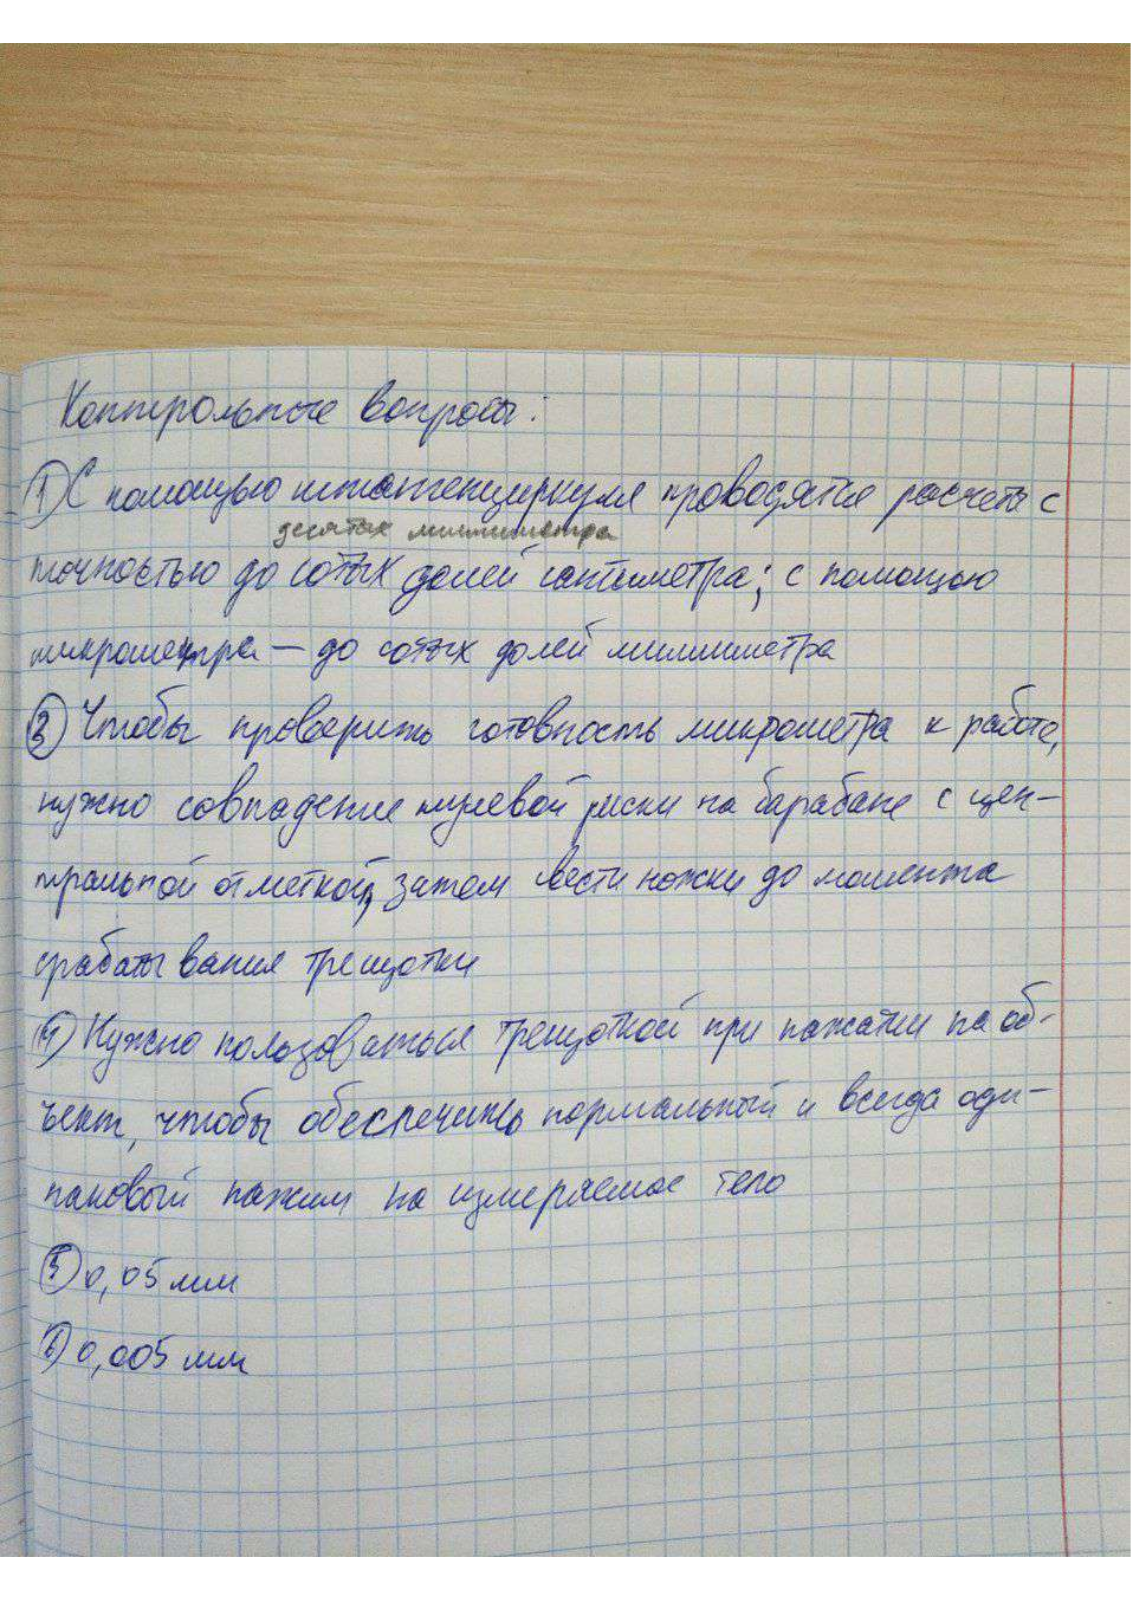 Контрольные вопросы:
1) С помощью штангенциркуля проводятся расчеты с
десятых миллиметра
точностью до сотых долей сантиметра; с помощью
микрометра — до сотых долей миллиметра
3) Чтобы проверить готовность микрометра к работе,
нужно совпадение нулевой риски на барабане с цен-
тральной отметкой, затем свести ножки до момента
срабатывания трещотки
4) Нужно пользоваться трещоткой при нажатии на об-
ъект, чтобы обеспечить нормальный и всегда оди-
наковый нажим на измеряемое тело
5) 0,05 мм
6) 0,005 мм